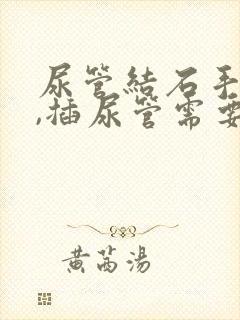 尿管結石手
,插尿管需要
黄芮湯